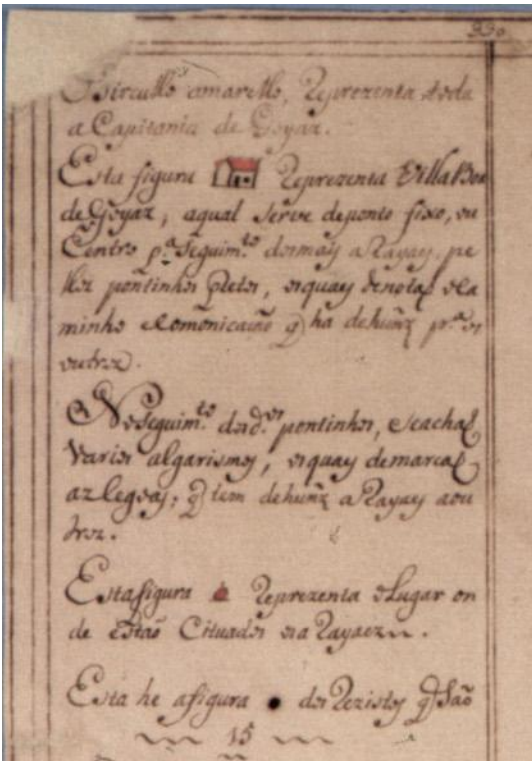 O circullo amarello, Reprezenta toda
a Capitania de Goyaz.
Esta figura Reprezenta Villa Boa
de Goyaz, aqual serve deponto fixo, ou
Centro p.ª seguim.to dosmais aRayaes, pe
llos pontinhos pretos, osquaes denotaõ oCa
minho eComonicaçaõ q̃ ha dehuñz pr.ª os
outros.
No seguim.to dosd.os pontinhos, seachaõ
Varios algarismos, osquaes demarcaõ
azlegoas, q̃ tem dehuñz aRayaes aou
tros.
Esta figura Reprezenta oLugar on
de estaõ Cituados osaRayaez.
Esta he afigura dos Rezistos q̃ Saõ
15